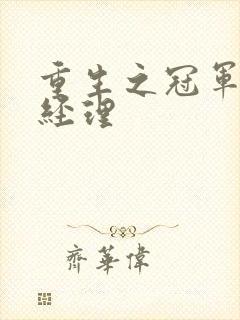 重生之冠軍
經理
齊華偉